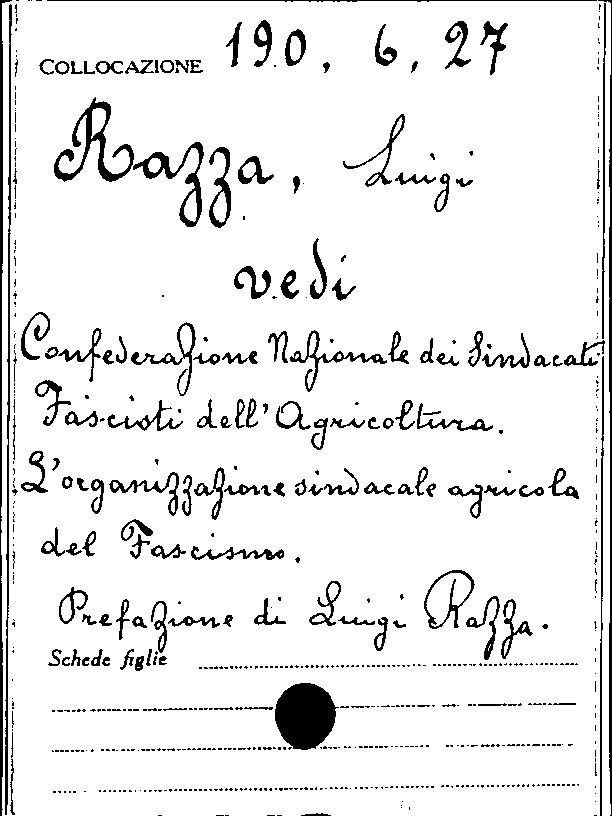 COLLOCAZIONE 190. 6. 27
Razza, Luigi
vedi
Confederazione Nazionale dei Sindacati
Fascisti dell'Agricoltura.
L'organizzazione sindacale agricola
del Fascismo.
Prefazione di Luigi Razza.
Schede figlie